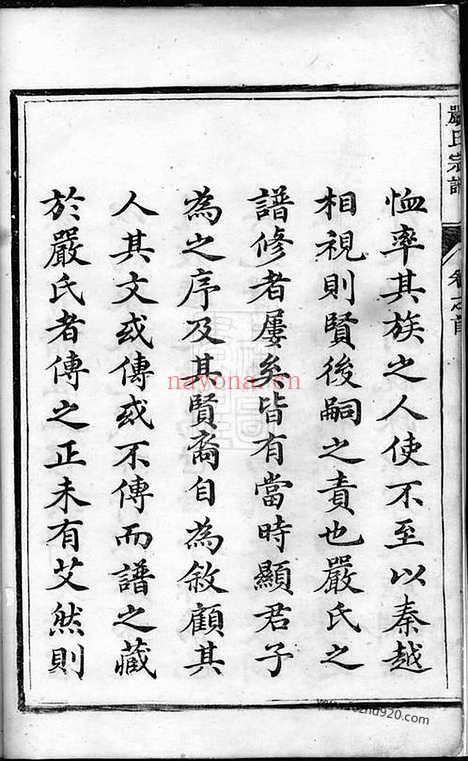 嚴氏宗譜
卷之首
恤率其族之人使不至以秦越
相視則賢後嗣之責也嚴氏之
譜修者屢矣皆有當時顯君子
為之序及其賢裔自為敘顧其
人其文或傳或不傳而譜之藏
於嚴氏者傳之正未有艾然則
nayona.cn